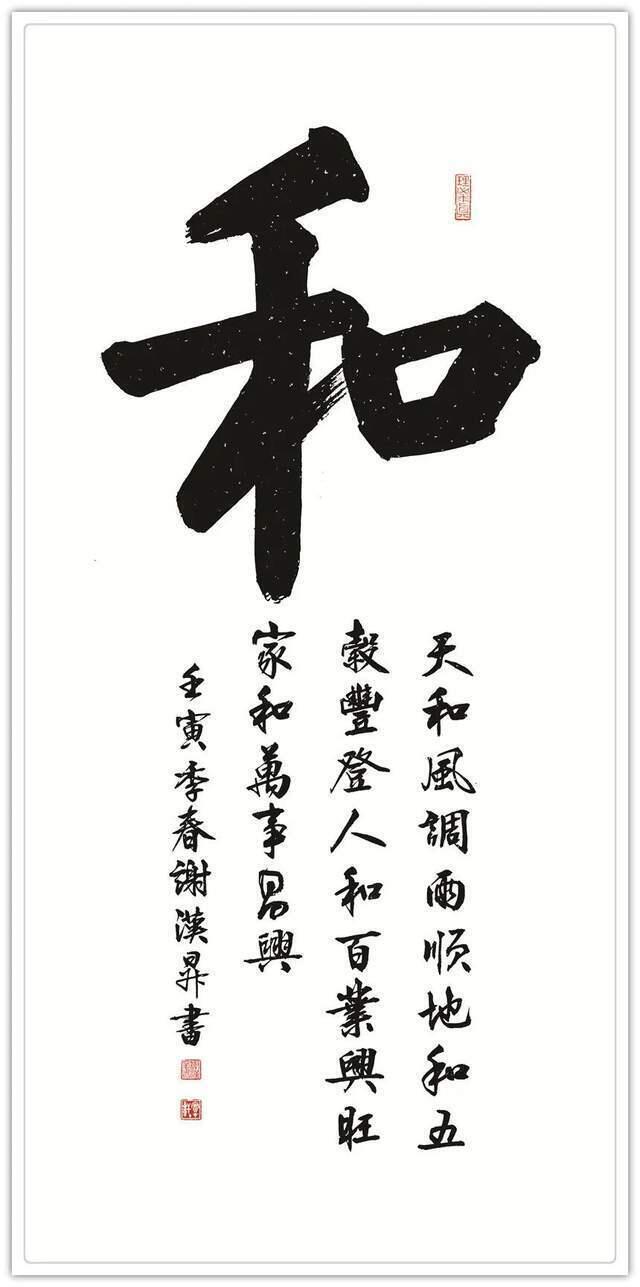 和
天和風調雨順地和五
穀豐登人和百業興旺
家和萬事昌興
壬寅季春謝漢昇書